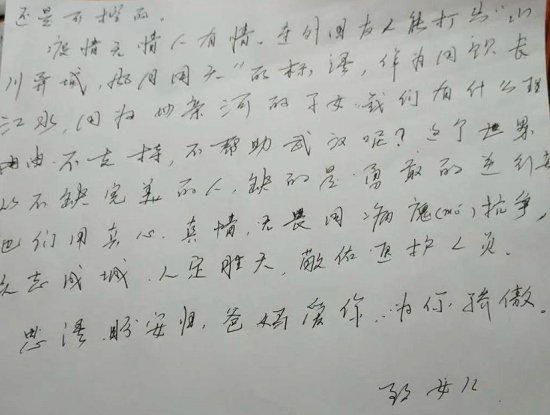 还是可控的。
疫情无情人有情。连外国友人能打出“山
川异域，风月同天”的标语，作为同饮长
江水，同为炎黄的子女，我们有什么理
由不支持，不帮助武汉呢？这个世界
从不缺完美的人，缺的是勇敢的逆行者
他们用真心、真情，无畏同病魔(mó)抗争，
众志成城，人定胜天，敬佑医护人员。
思语盼安归，爸妈爱你，为你骄傲。
致女儿